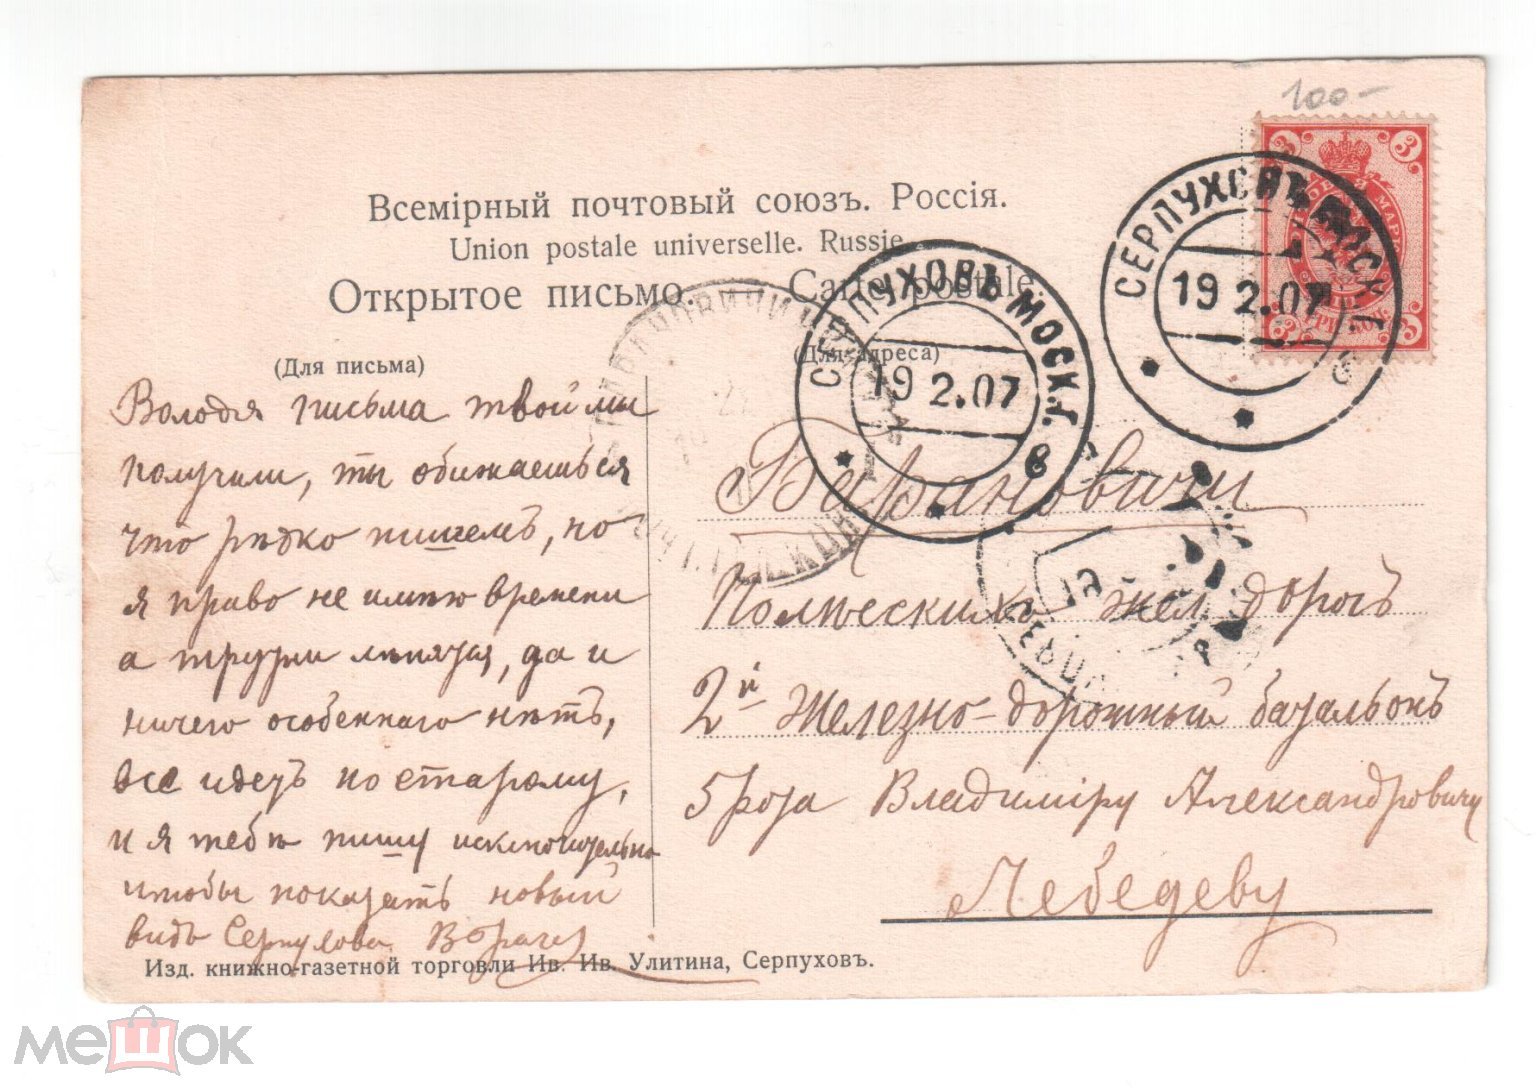 100-
Всемірный почтовый союзъ. Россія.
Union postale universelle. Russie.
Открытое письмо. Carte postale.
(Для письма)
(Для адреса)
СЕРПУХОВЪ МОСК.Г.
19 2.07
СЕРПУХОВЪ МОСК.Г.
19 2.07
8
3
3
3
3
Володя письма твои мы
получили, ты обижаешься
что рѣдко пишемъ, но
я право не имѣю времени
а другіи лѣнятся, да и
ничего особеннаго нѣтъ,
все идетъ по старому,
и я тебѣ пишу исключительно
чтобы показать новый
видъ Серпухова
Барановичи
Полѣскихъ жел дорогъ
2й Железно-дорожный баталіонъ
5 рота Владиміру Александровичу
Лебедеву
Изд. книжно-газетной торговли Ив. Ив. Улитина, Серпуховъ.
мешок